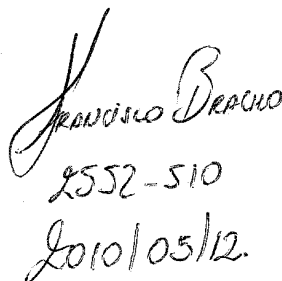 Francisco Bracho
2552-510
2010/05/12.